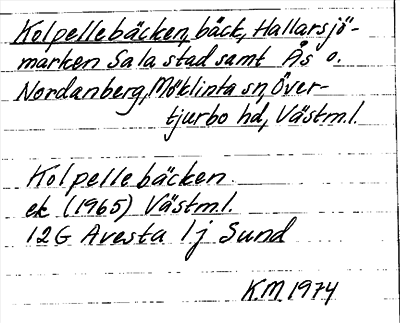 Kolpellebäcken, bäck, Hallarsjö-
marken Sala stad samt Ås o.
Nordanberg, Möklinta sn, Över-
tjurbo hd, Västml.
Kolpellebäcken
ek (1965) Västml.
12G Avesta 1j Sund
K.M. 1974